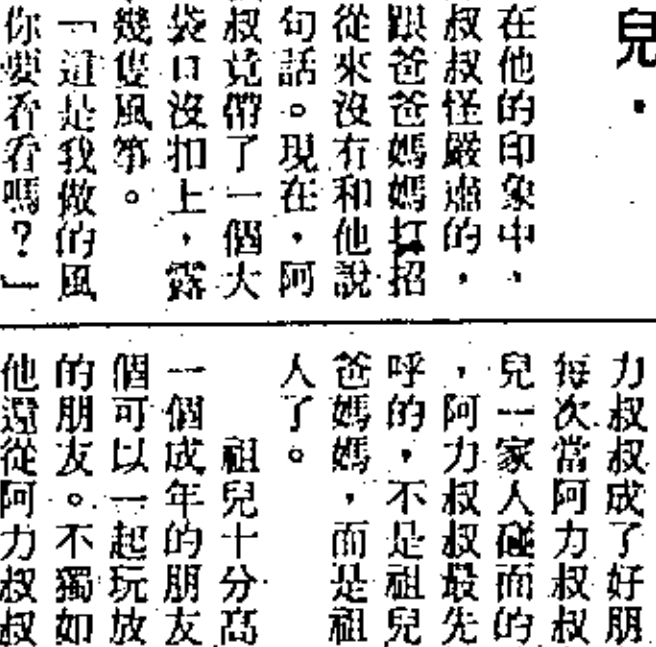 兒，
在他的印象中，
叔叔怪嚴肅的，
跟爸爸媽媽打招
從來沒有和他說
句話。現在，阿
叔竟帶了一個大
袋口沒扣上，露
幾隻風箏。
「這是我做的風
你要看看嗎？」
力叔叔成了好朋
每次當阿力叔叔
兒一家人碰面的
，阿力叔叔最先
呼的，不是祖兒
爸媽媽，而是祖
人了。
祖兒十分高
一個成年的朋友
個可以一起玩放
的朋友。不獨如
他還從阿力叔叔